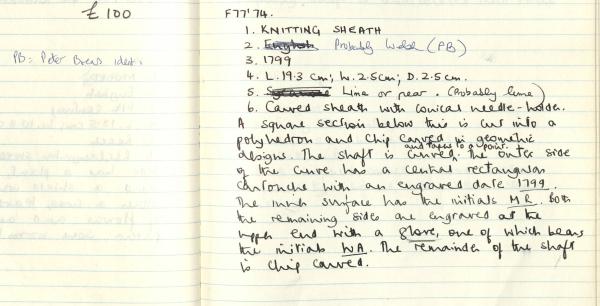 £100
PB = Peter Brears ident.
F77'74.
1. KNITTING SHEATH
2. English Probably Welsh (PB)
3. 1799
4. L. 19.3 cm; W. 2.5cm; D. 2.5 cm.
5. Sycamore Lime or pear. (Probably lime)
6. Carved sheath with conical needle-holder.
A square section below this is cut into a
polyhedron and chip carved in geometric
and tapers to a point.
designs. The shaft is curved. The outer side
of the curve has a central rectangular
cartouche with an engraved date 1799.
The inner surface has the initials MR. Both
the remaining sides are engraved at the
upper end with a glove, one of which bears
the initials WA. The remainder of the shaft
is chip carved.